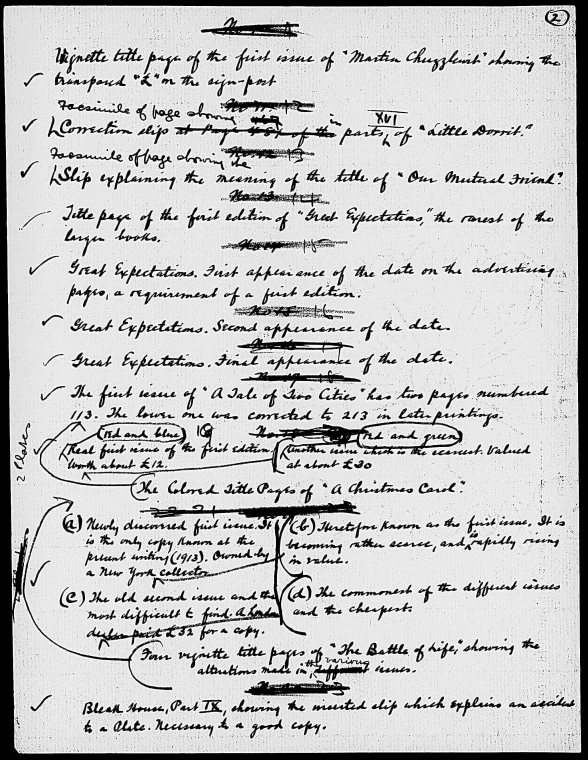 2
Vignette title page of the first issue of "Martin Chuzzlewit" showing the
transposed "£" on the sign-post
Facsimile of page showing
Correction slip at Page 467 of the in parts XVI of "Little Dorrit."
Facsimile of page showing the
Slip explaining the meaning of the title of "Our Mutual Friend".
Title page of the first edition of "Great Expectations," the rarest of the
larger books.
Great Expectations. First appearance of the date on the advertising
pages, a requirement of a first edition.
Great Expectations. Second appearance of the date.
Great Expectations. Final appearance of the date.
The first issue of "A Tale of Two Cities" has two pages numbered
113. The lower one was corrected to 213 in later printings.
(red and blue)
(red and green)
Real first issue of the first edition
worth about £12.
Another issue which is the scarcest. Valued
at about £30
2 Plates
The Colored Title Pages of "A Christmas Carol".
(a) Newly discovered first issue. It
is the only copy known at the
present writing (1913). Owned by
a New York collector
(b) Heretofore known as the first issue. It is
becoming rather scarce, and is rapidly rising
in value.
(c) The old second issue and the
most difficult to find. A London
dealer paid £32 for a copy.
(d) The commonest of the different issues
and the cheapest.
Four vignette title pages of "The Battle of Life," showing the
alterations made in the various issues.
Bleak House, Part IX, showing the inserted slip which explains an accident
to a Plate. Necessary to a good copy.